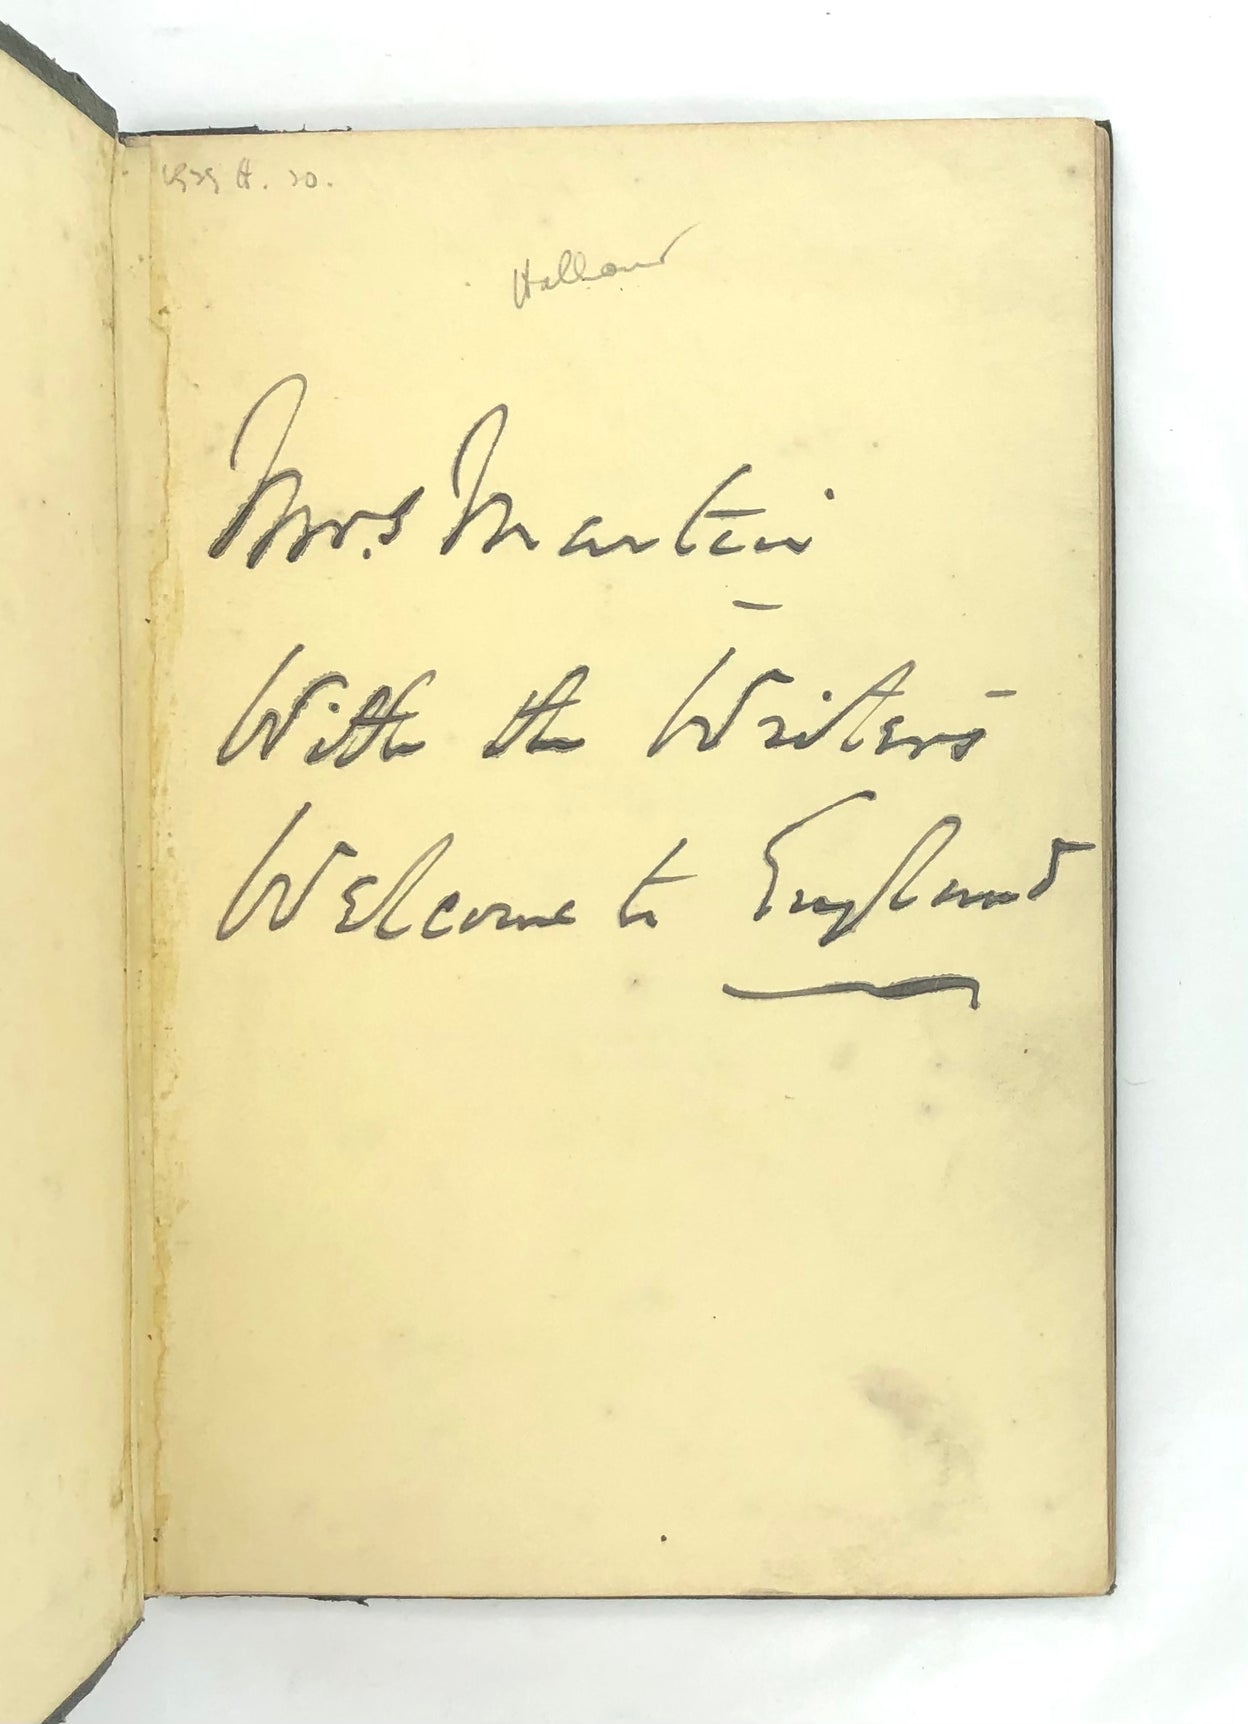 H. 20.
Holland
Mrs. Martin
With the Writer's
Welcome to England